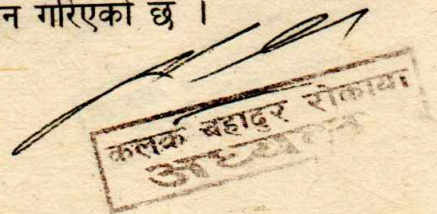 न गरिएको छ ।
कलक बहादुर रोकाया
अध्यक्ष